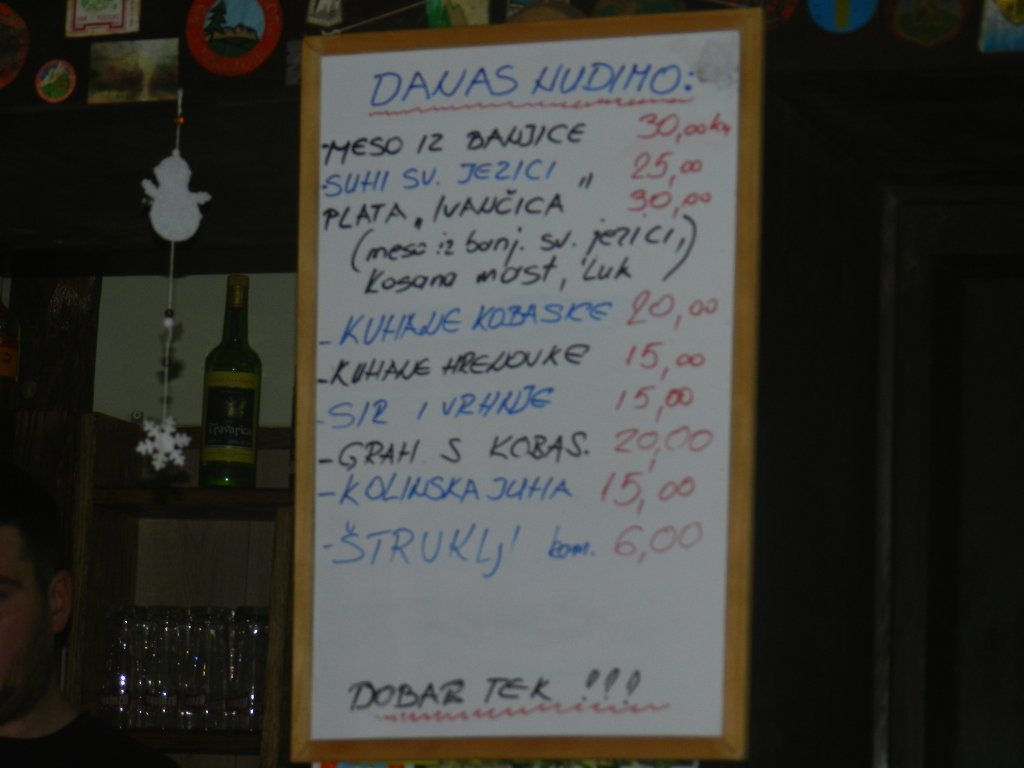 DANAS NUDIMO:
-MESO IZ BANJICE 30,00 kn
-SUHI SV. JEZICI 25,00
PLATA „IVANČICA" 30,00
(meso iz banj. sv. jezici,
kosana mast, luk)
-KUHANE KOBASICE 20,00
-KUHANE HRENOVKE 15,00
-SIR I VRHNJE 15,00
-GRAH S KOBAS. 20,00
-KOLINSKA JUHA 15,00
-ŠTRUKLJI kom. 6,00
DOBAR TEK !!!
Travarica